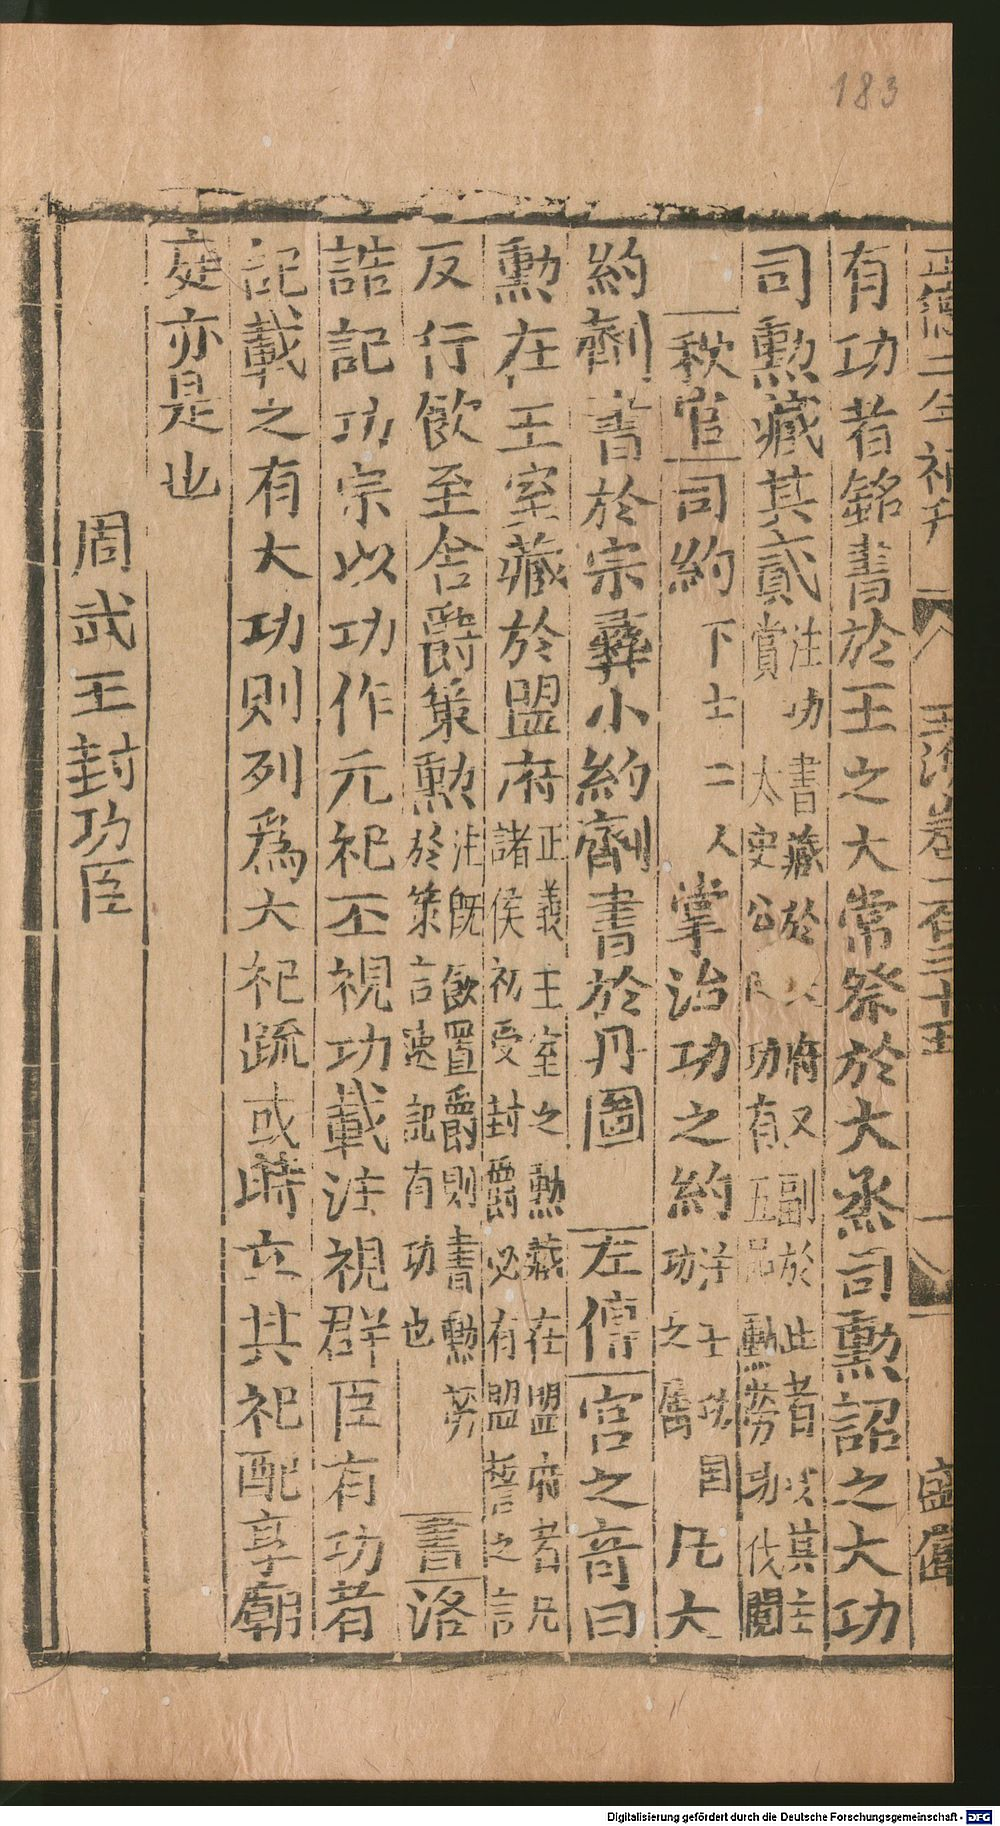 183
正德二年補刊 玉海卷一百三十五 一
有功者銘書於王之大常祭於大烝司勲詔之大功
司勲藏其貳
注功書藏於天府又副於此者以其主
賞 太史公曰功有五品勲勞功伐閱
秋官司約下士二人掌治功之約
注王功国
功之屬
凡大
約劑書於宗彝小約劑書於丹圖 左傳宮之竒曰
勲在王室藏於盟府
正義王室之勲藏在盟府者凡
諸侯初受封爵必有盟誓之言
反行飲至舍爵策勲
注既飲置爵則書勲勞
於策言速記有功也
書洛
誥記功宗以功作元祀丕視功載注視群臣有功者
記載之有大功則列爲大祀疏或時立其祀配享廟
庭亦是也
周武王封功臣
Digitalisierung gefördert durch die Deutsche Forschungsgemeinschaft - DFG